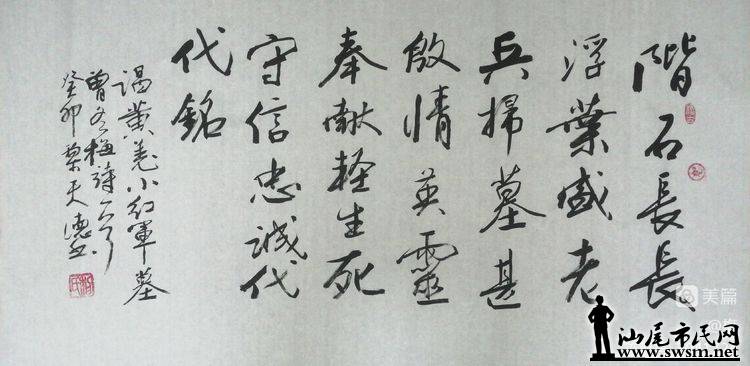 階石長長
浮葉盛老
兵掃墓甚
殷情英靈
奉獻輕生死
守信忠誠代
代銘
謁黄羌小紅軍墓
曾冬梅詩一首
癸卯 天德書
美篇
汕尾市民网
www.swsm.net